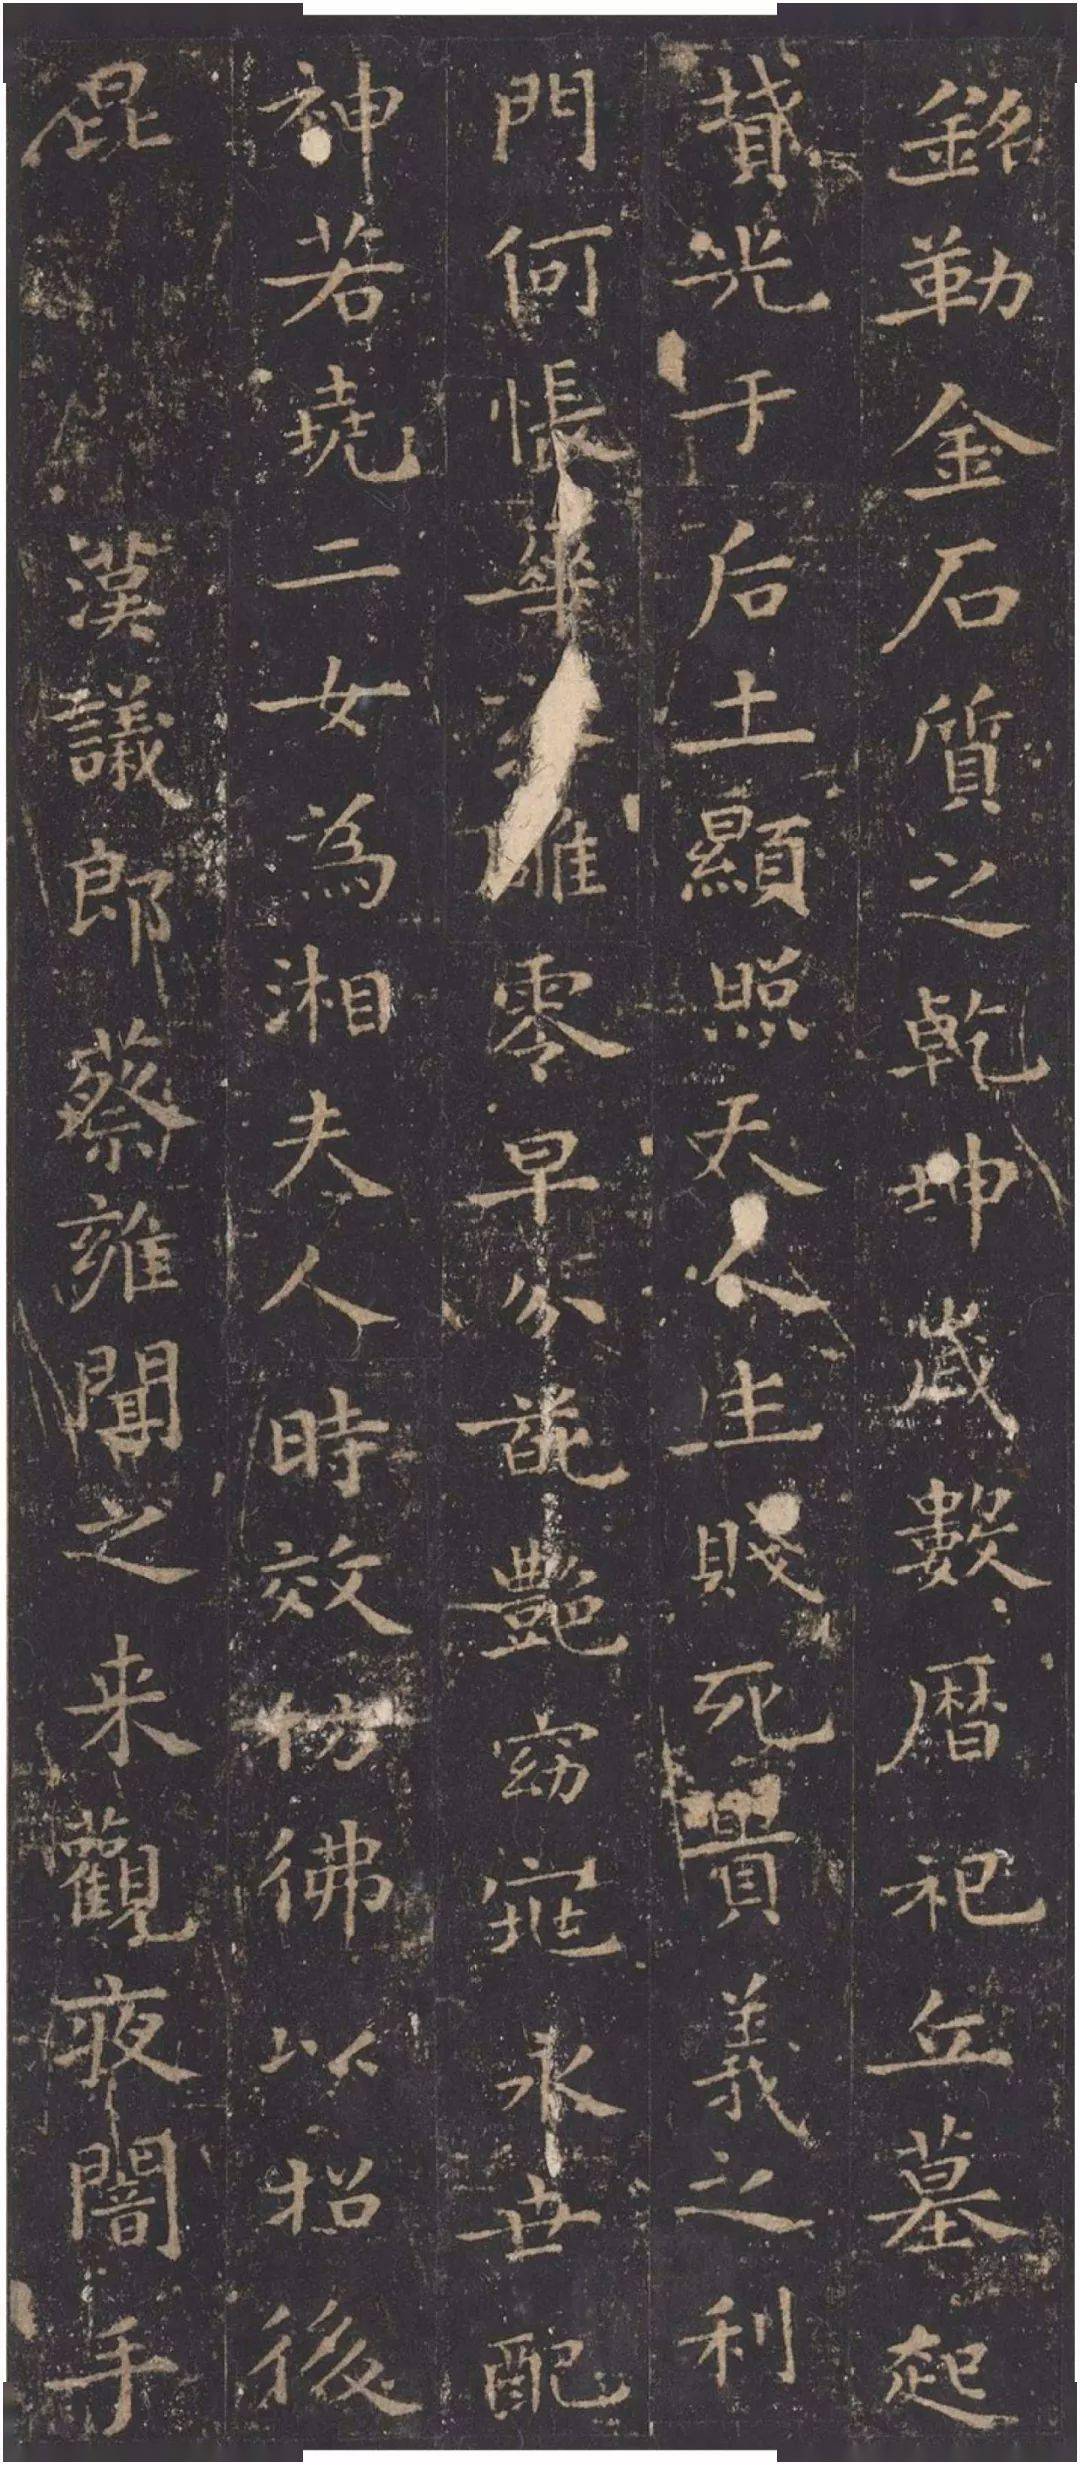 銘勒金石質之乾坤歲數暦祀丘墓起
墳光于后土顯照天人生賤死貴義之利
門何悵華雕零早分葩豔窈窕永世配
神若堯二女為湘夫人時效彷彿以招後
昆 漢議郎蔡雍聞之来觀夜闇手